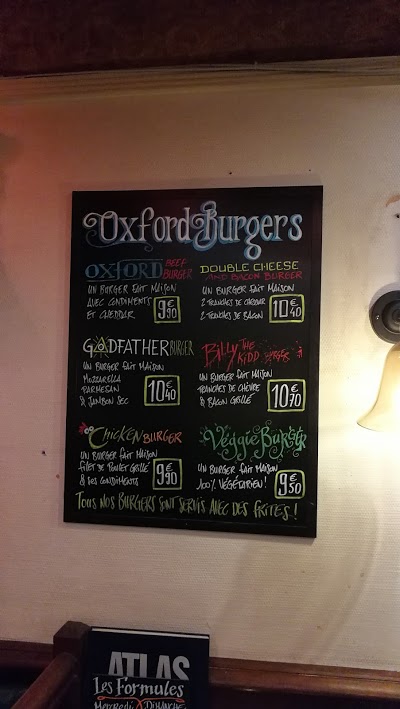 Oxford Burgers
OXFORD BEEF BURGER
UN BURGER FAIT MAISON
AVEC CONDIMENTS
ET CHEDDAR
9€90
DOUBLE CHEESE
AND BACON BURGER
UN BURGER FAIT MAISON
2 TRANCHES DE CHEDDAR
2 TRANCHES DE BACON
10€40
GODFATHER BURGER
UN BURGER FAIT MAISON
MOZZARELLA
PARMESAN
& JAMBON SEC
10€40
Billy THE KIDD BURGER
UN BURGER FAIT MAISON
TRANCHES DE CHÈVRE
& BACON GRILLÉ
10€70
CHICKEN BURGER
UN BURGER FAIT MAISON
FILET DE POULET GRILLÉ
& SES CONDIMENTS
9€90
Veggie Burger
UN BURGER FAIT MAISON
100% VÉGÉTARIEN !
9€50
TOUS NOS BURGERS SONT SERVIS AVEC DES FRITES !
ATLAS
Les Formules
Mercredi à Dimanche